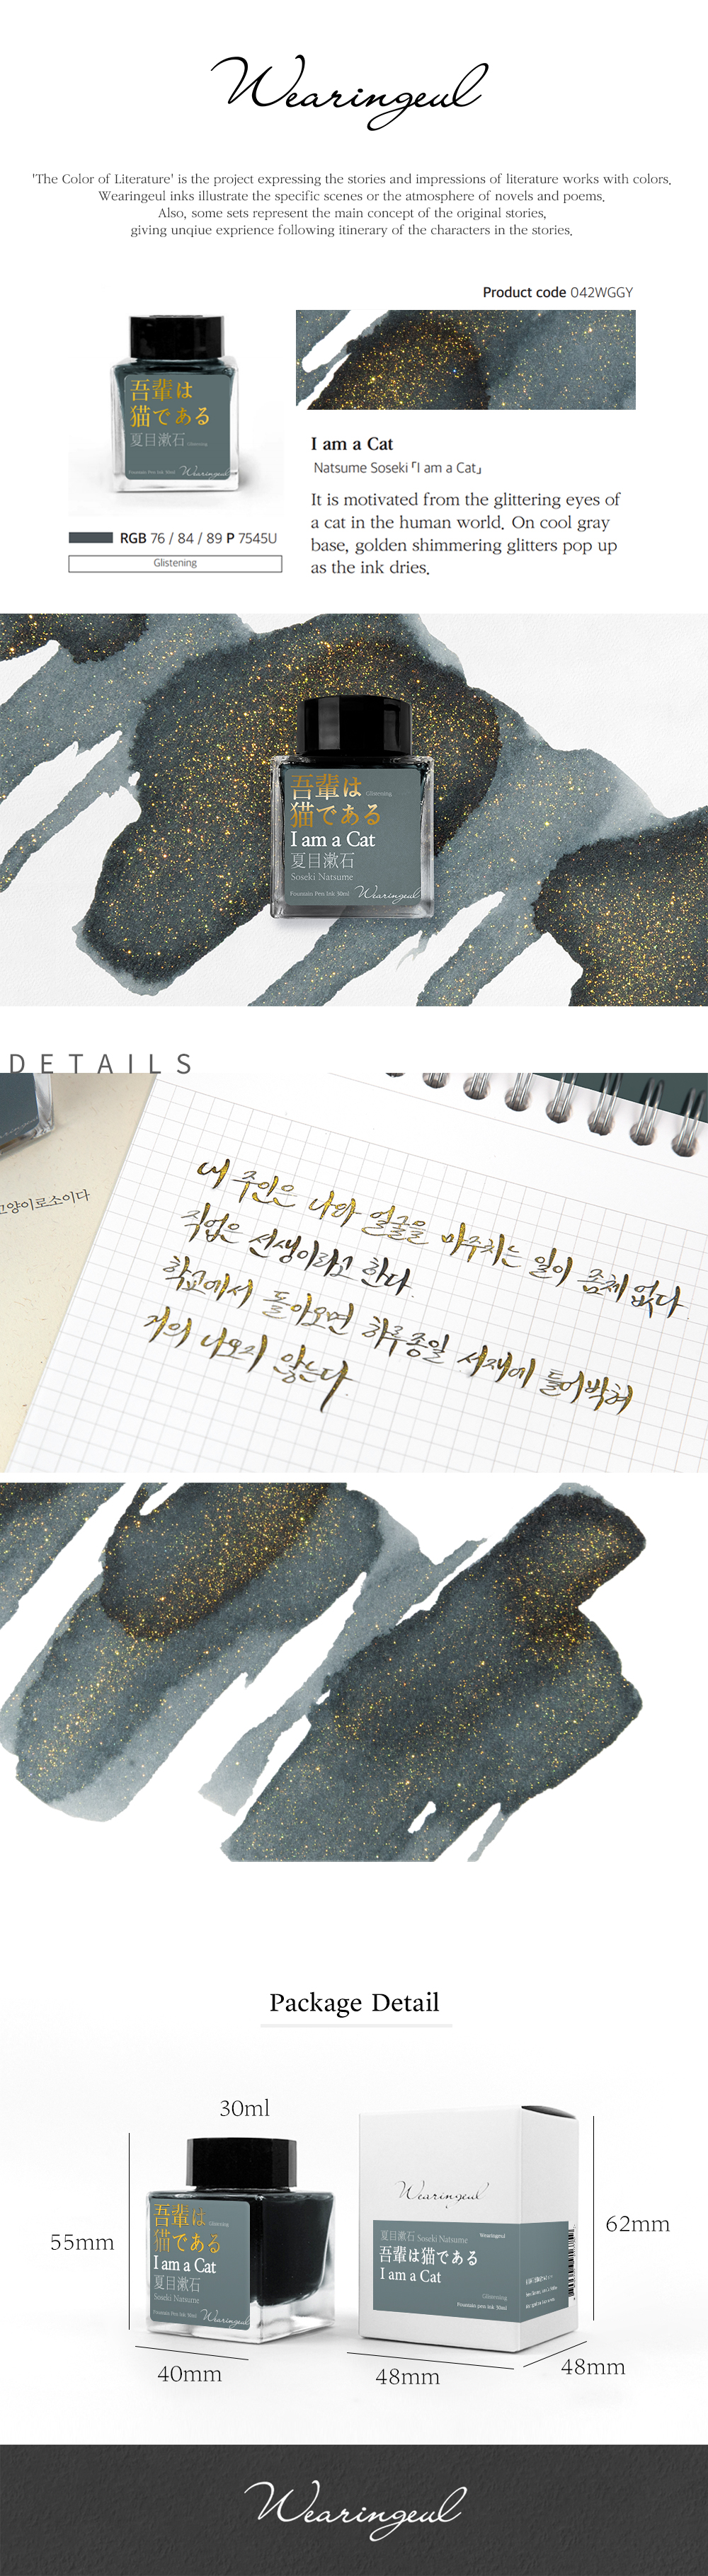 Wearingeul
'The Color of Literature' is the project expressing the stories and impressions of literature works with colors.
Wearingeul inks illustrate the specific scenes or the atmosphere of novels and poems.
Also, some sets represent the main concept of the original stories,
giving unqiue exprience following itinerary of the characters in the stories.
Product code 042WGGY
吾輩は
猫である
夏目漱石 Glistening
Fountain Pen Ink 30ml Wearingeul
RGB 76 / 84 / 89 P 7545U
Glistening
I am a Cat
Natsume Soseki「I am a Cat」
It is motivated from the glittering eyes of
a cat in the human world. On cool gray
base, golden shimmering glitters pop up
as the ink dries.
吾輩は Glistening
猫である
I am a Cat
夏目漱石
Soseki Natsume
Fountain Pen Ink 30ml Wearingeul
DETAILS
고양이로소이다
내 주인은 나와 얼굴을 마주치는 일이 좀체 없다
직업은 선생이라고 한다.
학교에서 돌아오면 하루종일 서재에 틀어박혀
거의 나오지 않는다.
Package Detail
30ml
55mm
40mm
吾輩は Glistening
猫である
I am a Cat
夏目漱石
Soseki Natsume
Fountain Pen Ink 30ml Wearingeul
Wearingeul
夏目漱石 Soseki Natsume Wearingeul
吾輩は猫である
I am a Cat
Glistening
Fountain pen Ink 30ml
62mm
48mm
48mm
Wearingeul